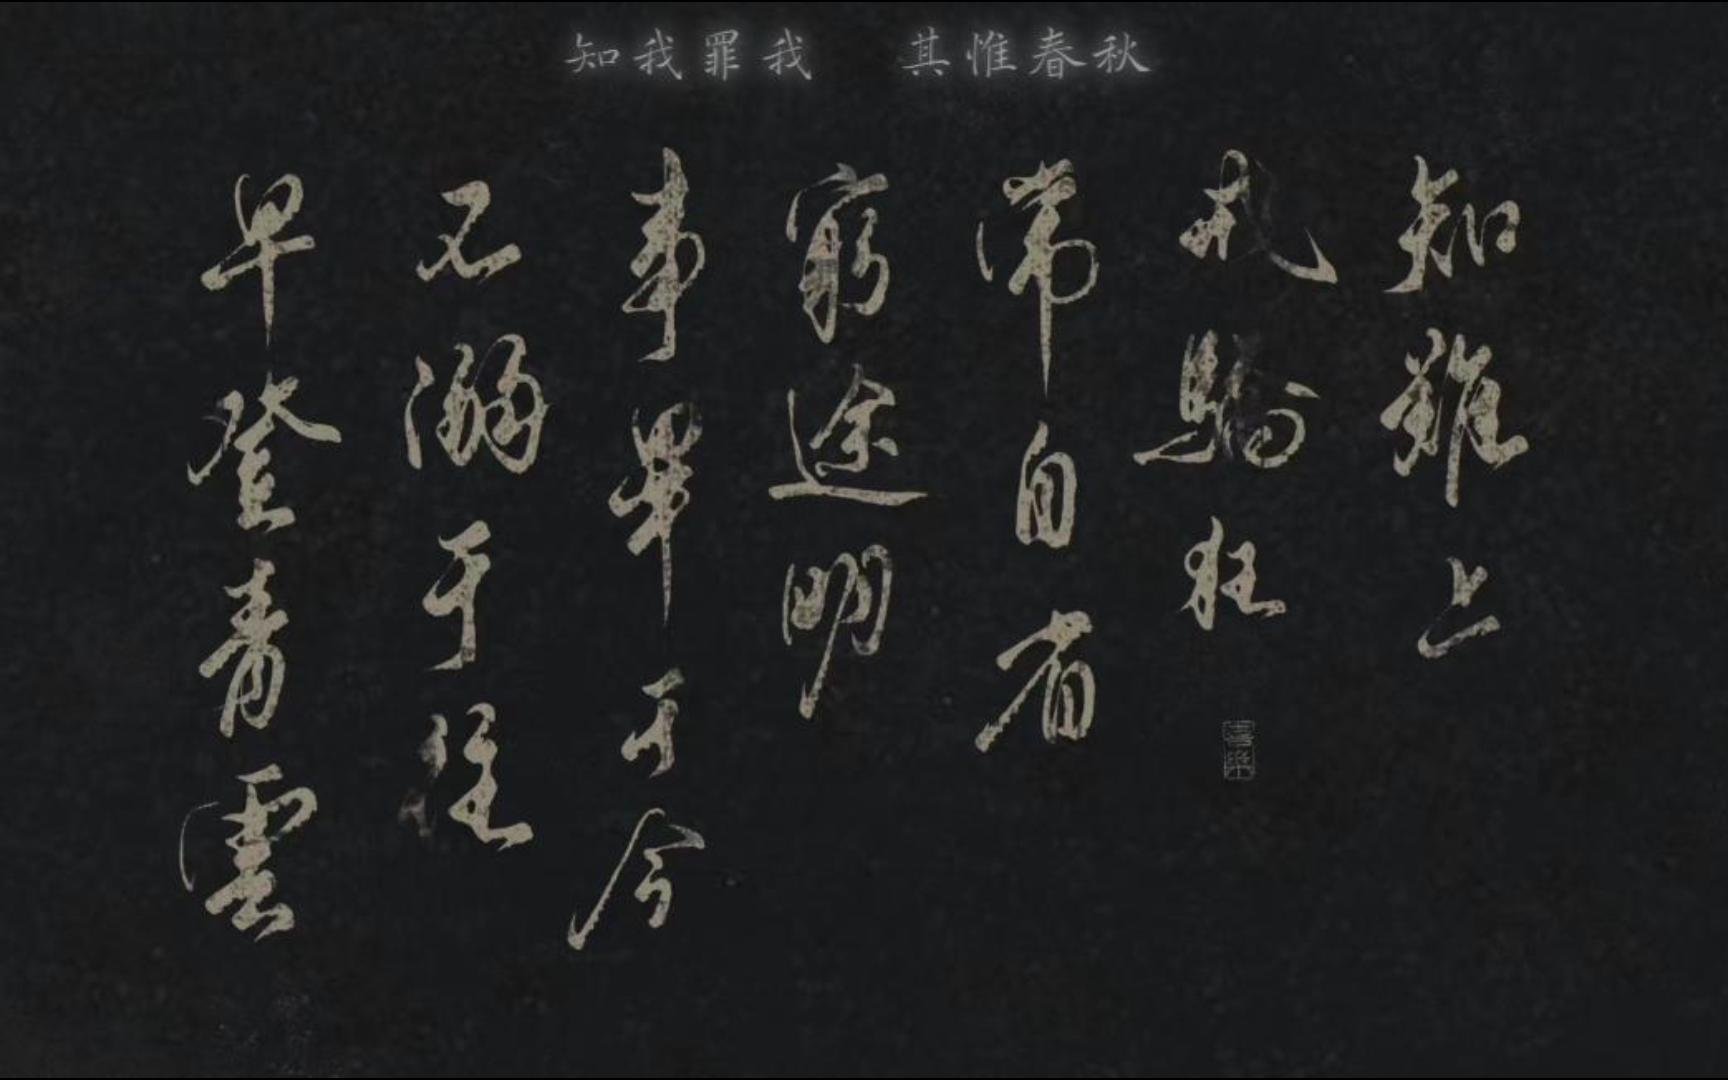 知我罪我 其惟春秋
知難上
戒驕狂
常自省
窮途明
事畢于今
不溺于往
早登青雲